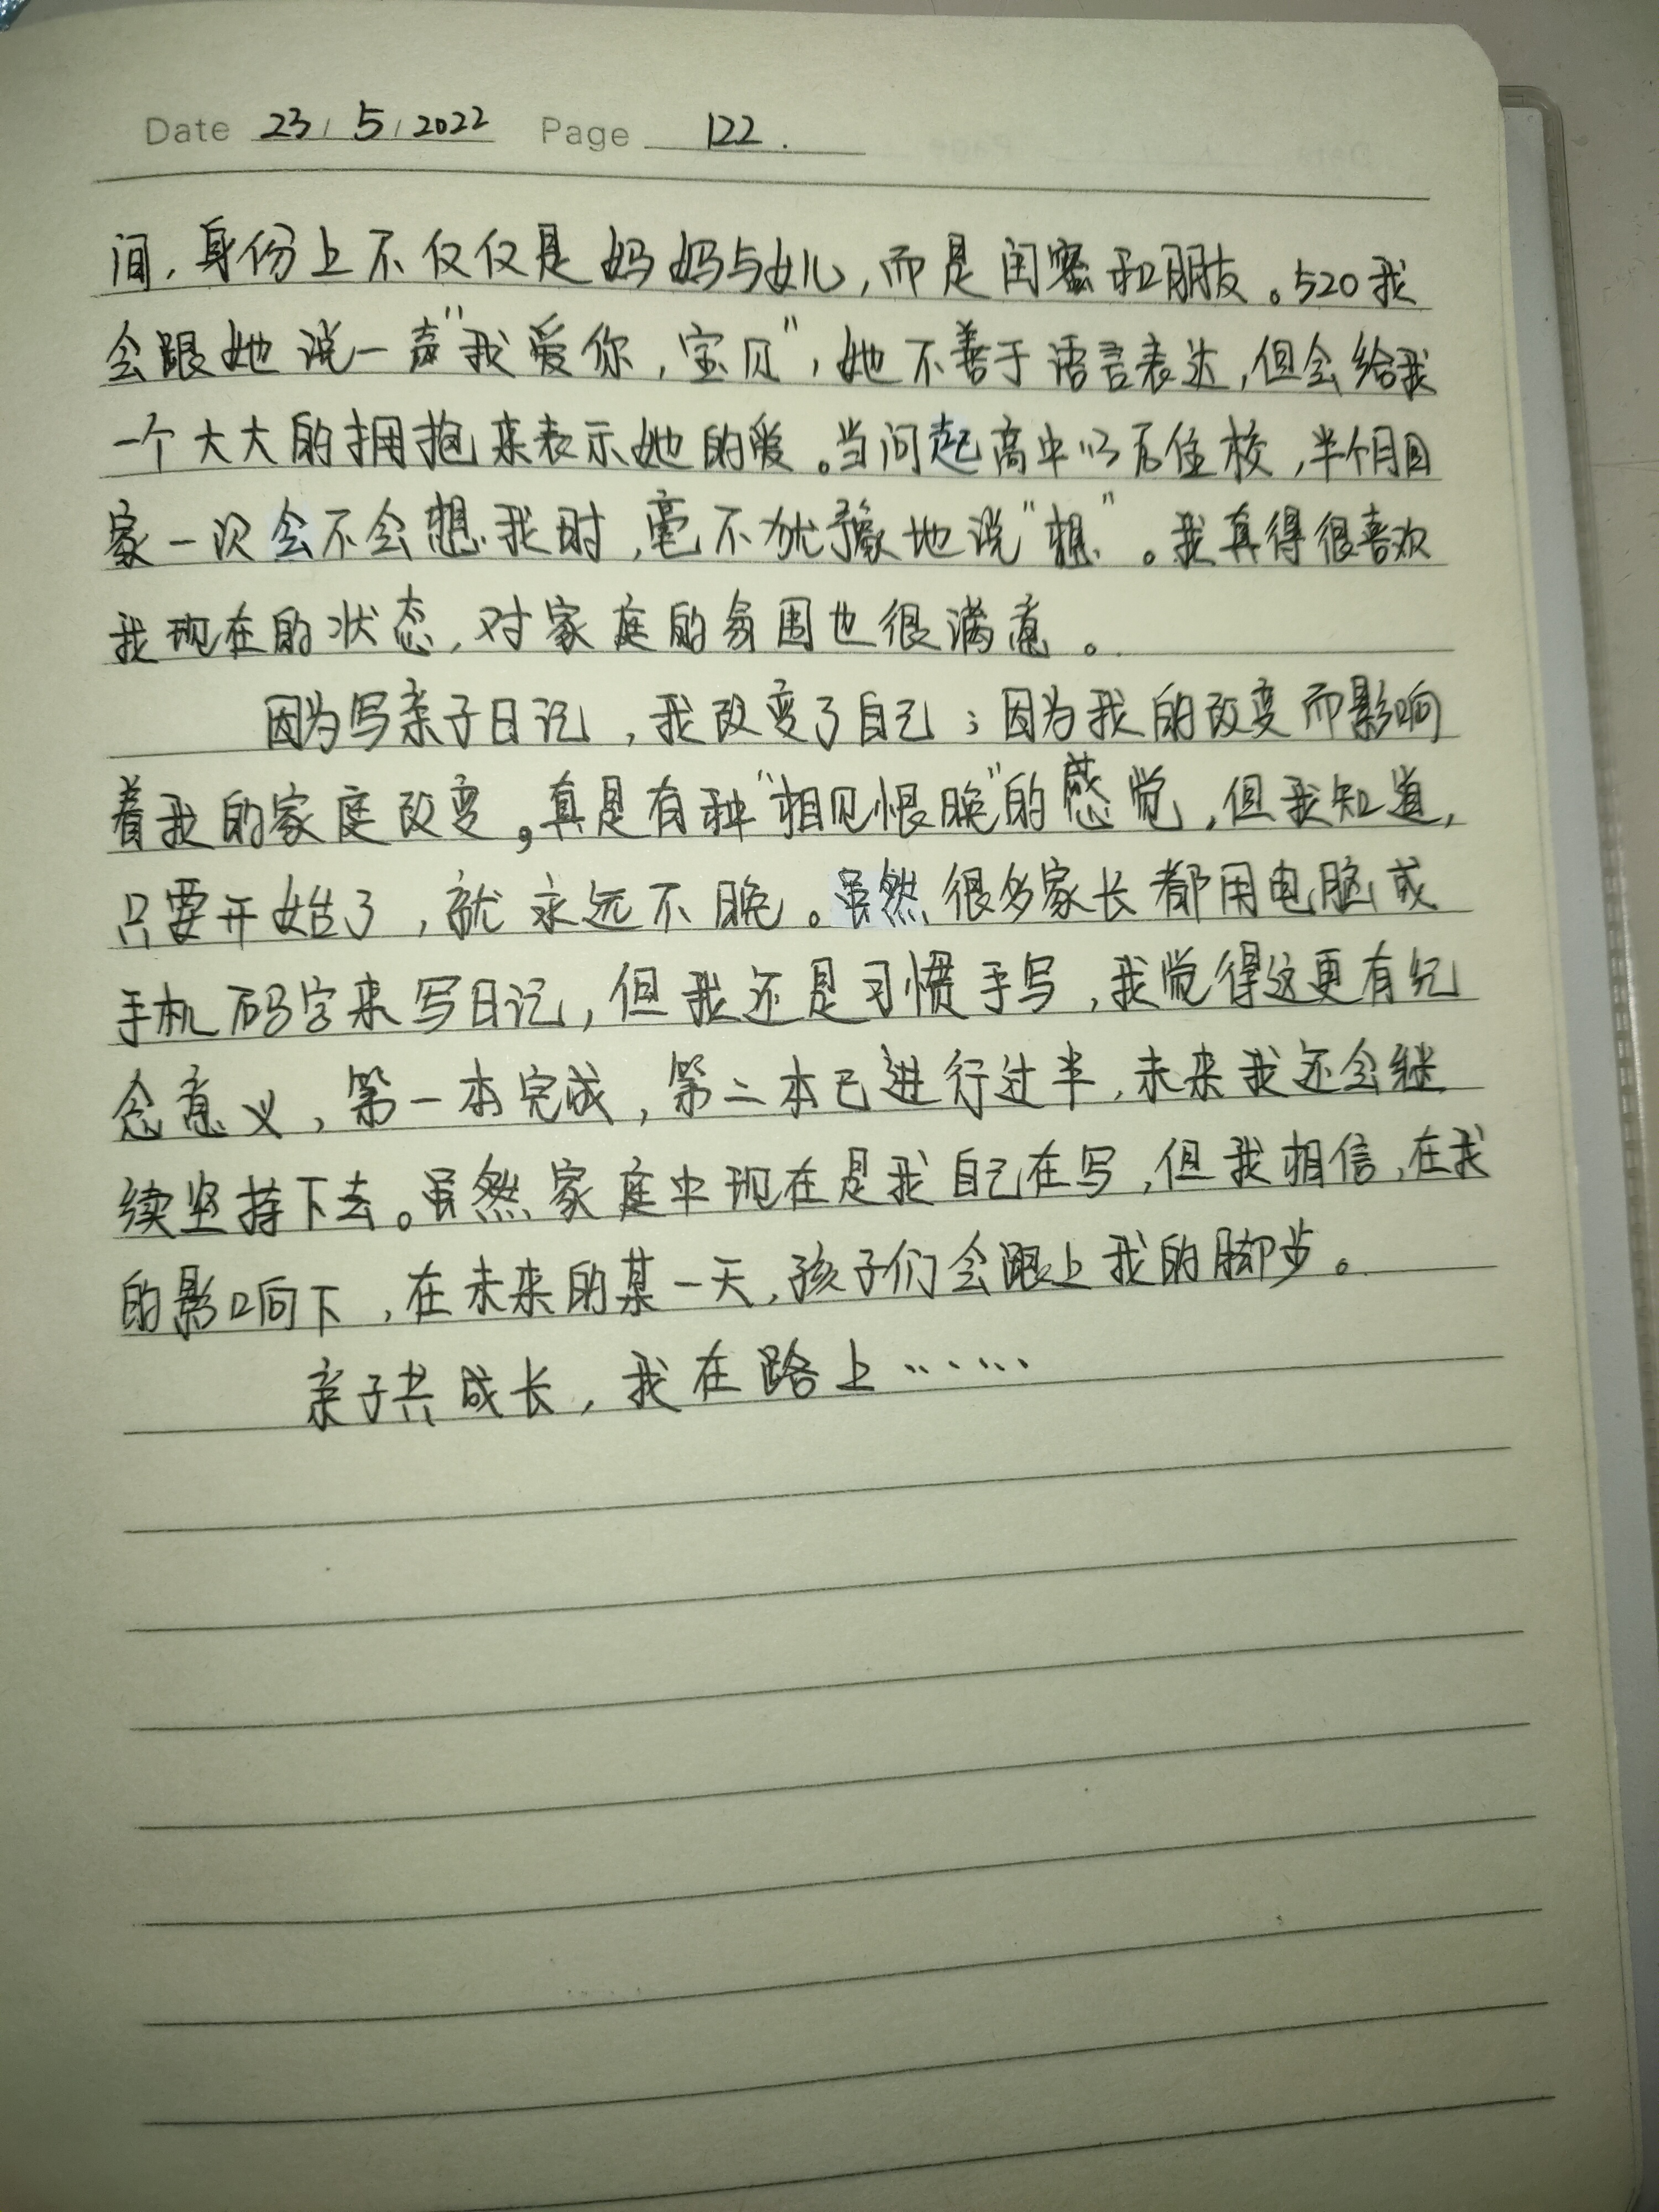 Date 23/5/2022 Page 122.
间,身份上不仅仅是妈妈与女儿,而是闺蜜和朋友。520我
会跟她说一声"我爱你,宝贝",她不善于语言表达,但会给我
一个大大的拥抱来表示她的爱。当问起高中以后住校,半个月回
家一次会不会想我时,毫不犹豫地说"想"。我真得很喜欢
我现在的状态,对家庭的氛围也很满意。
因为写亲子日记,我改变了自己;因为我的改变而影响
着我的家庭改变,真是有种"相见恨晚"的感觉,但我知道,
只要开始了,就永远不晚。虽然很多家长都用电脑或
手机码字来写日记,但我还是习惯手写,我觉得这更有纪
念意义,第一本完成,第二本已进行过半,未来我还会继
续坚持下去。虽然家庭中现在是我自己在写,但我相信,在我
的影响下,在未来的某一天,孩子们会跟上我的脚步。
亲子共成长,我在路上……